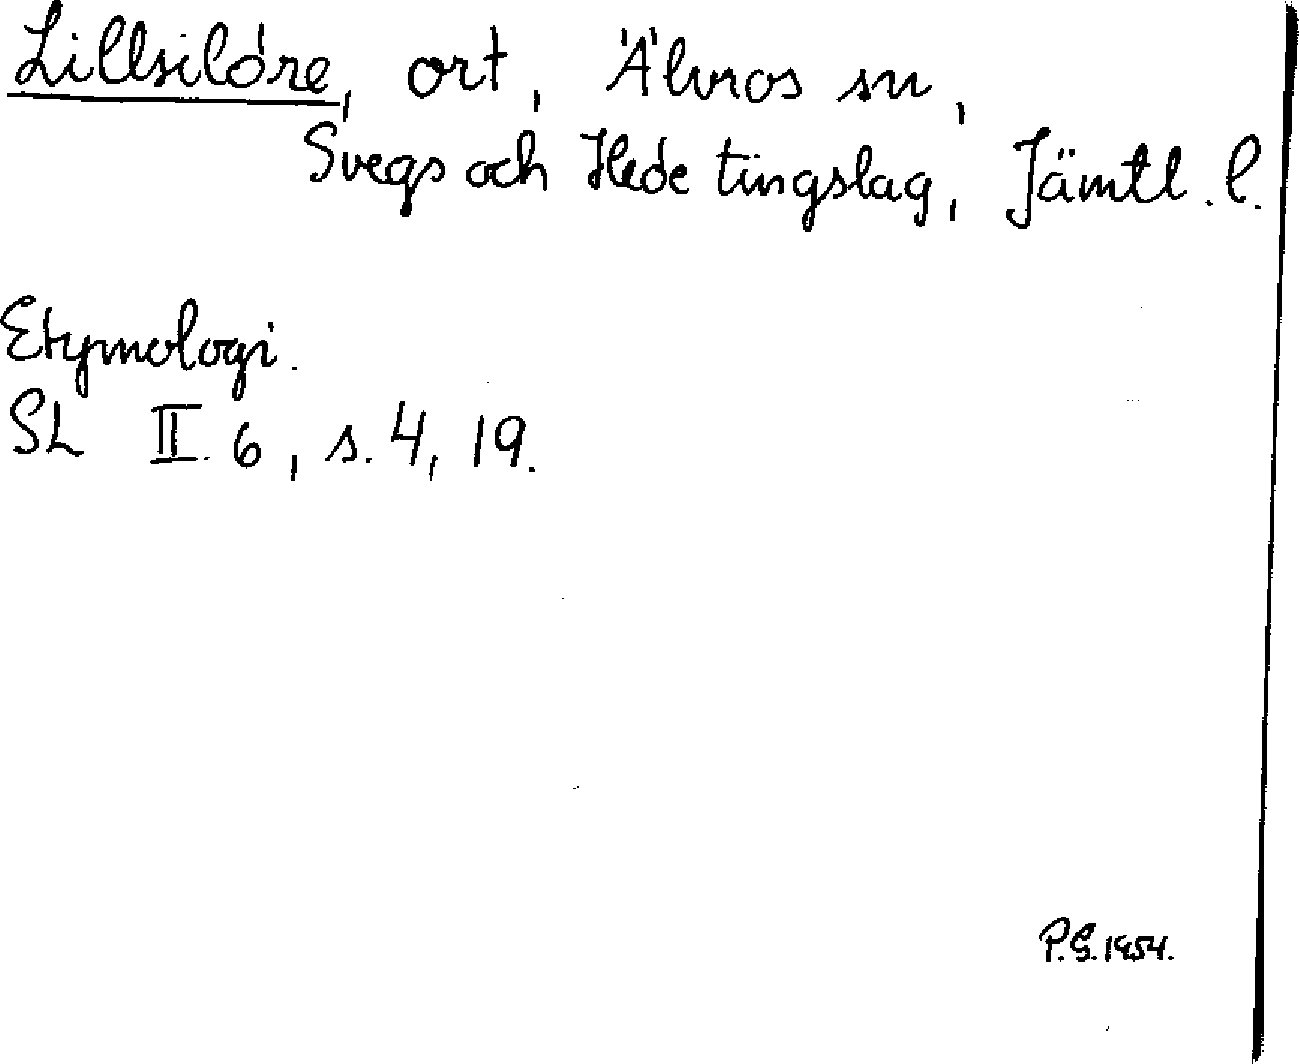 Lillsilöre, ort, Älvros sn,
Svegs och Hede tingslag, Jämtl. l.
Etymologi.
SL II. 6, s. 4, 19.
P.G. 1954.